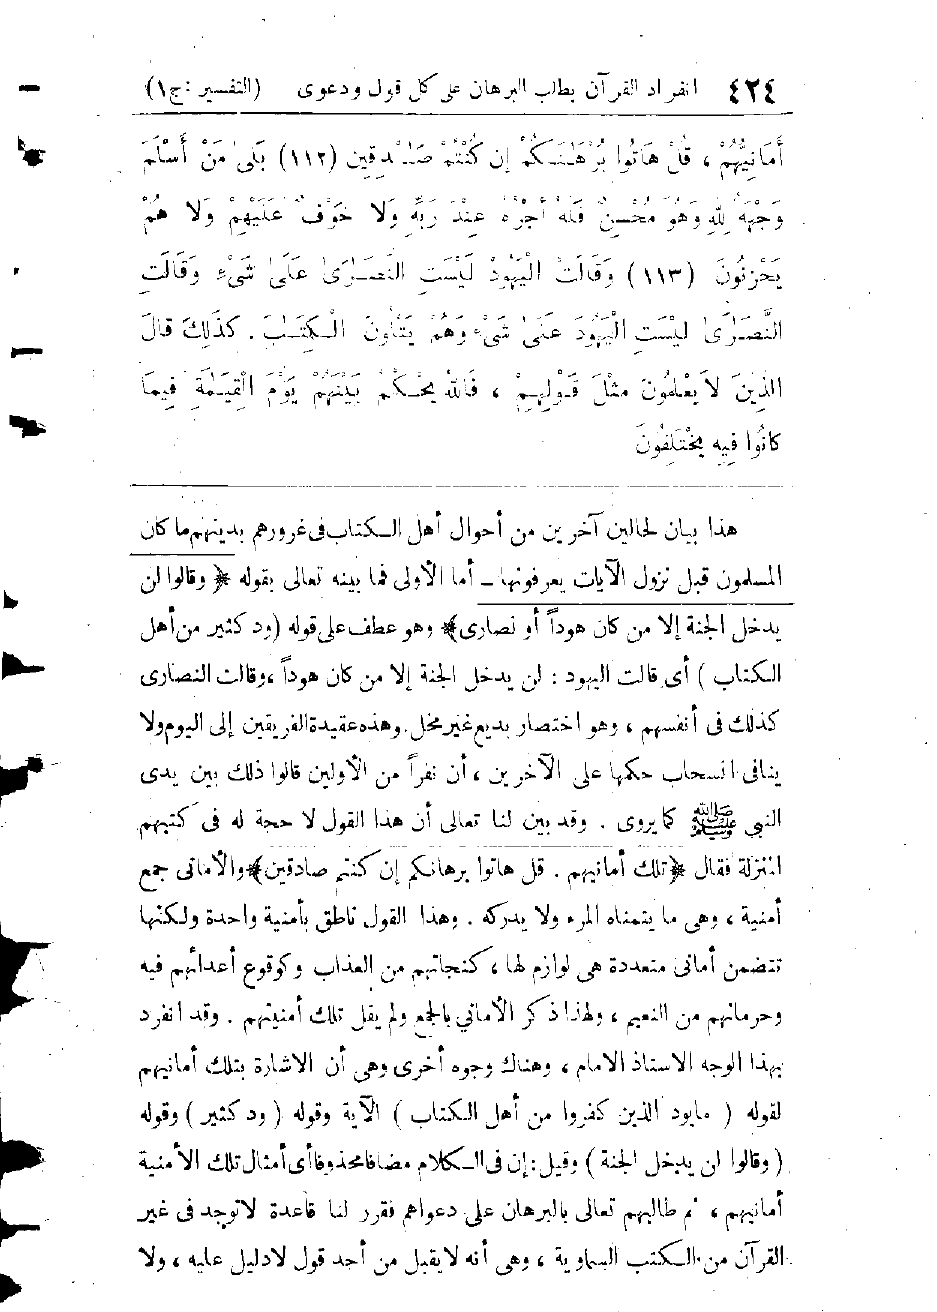 ٤٢٤ انفراد القرآن بطلب البرهان على كل قول ودعوى (التفسير : ج ١)
أَمَانِيُّهُمْ ، قُلْ هَاتُوا بُرْهَـٰنَكُمْ إِن كُنْتُمْ صَـٰدِقِين (١١٢) بَلَىٰ مَنْ أَسْلَمَ
وَجْهَهُ لِلهِ وَهُوَ مُحْسِنٌ فَلَهُ أَجْرُهُ عِنْدَ رَبِّهِ وَلَا خَوْفٌ عَلَيْهِمْ وَلَا هُمْ
يَحْزَنُونَ (١١٣) وَقَالَتْ الْيَهُودُ لَيْسَتِ النَّصَـٰرَىٰ عَلَىٰ شَىْءٍ وَقَالَتِ
النَّصَـٰرَىٰ لَيْسَتِ الْيَهُودُ عَلَىٰ شَىْءٍ وَهُمْ يَتْلُونَ الْـكِتَـٰبَ . كَذَلِكَ قَالَ
الَّذِينَ لاَ يَعْلَمُونَ مِثْلَ قَوْلِهِمْ ، فَاللهُ يَحْـكُمُ بَيْنَهُمْ يَوْمَ الْقِيَـٰمَةِ فِيمَا
كَانُوا فِيهِ يَخْتَلِفُونَ
هذا بيان لحالين آخرين من أحوال أهل الـكتاب فى غرورهم بدينهم ما كان
المسلمون قبل نزول الآيات يعرفونها ــ أما الأولى فما بينه تعالى بقوله ﴿ وقالوا لن
يدخل الجنة إلا من كان هوداً أو نصارى﴾ وهو عطف على قوله (ود كثير من أهل
الـكتاب ) أى قالت اليهود : لن يدخل الجنة إلا من كان هوداً ، وقالت النصارى
كذلك فى أنفسهم ، وهو اختصار بديع غير مخل . وهذه عقيدة الفريقين إلى اليوم ولا
ينافى انسحاب حكمها على الآخرين ، أن نفراً من الأولين قالوا ذلك بين يدى
النبي ﷺ كما يروى . وقد بين لنا تعالى أن هذا القول لا حجة له فى كتبهم
المنزلة فقال ﴿تلك أمانيهم . قل هاتوا برهانكم إن كنتم صادقين﴾ والأمانى جمع
أمنية ، وهى ما يتمناه المرء ولا يدركه . وهذا القول ناطق بأمنية واحدة ولـكنها
تتضمن أمانى متعددة هى لوازم لها ، كنجاتهم من العذاب وكوقوع أعدائهم فيه
وحرمانهم من النعيم ، ولهذا ذكر الأماني بالجمع ولم يقل تلك أمنيتهم . وقد انفرد
بهذا الوجه الاستاذ الامام ، وهناك وجوه أخرى وهى أن الاشارة بتلك أمانيهم
لقوله ( مايود الذين كفروا من أهل الـكتاب ) الآية وقوله ( ود كثير ) وقوله
( وقالوا لن يدخل الجنة ) وقيل : إن فى الـكلام مضافا محذوفا أى أمثال تلك الأمنية
أمانيهم ، ثم طالبهم تعالى بالبرهان على دعواهم فقرر لنا قاعدة لاتوجد فى غير
القرآن من الـكتب السماوية ، وهى أنه لايقبل من أحد قول لادليل عليه ، ولا